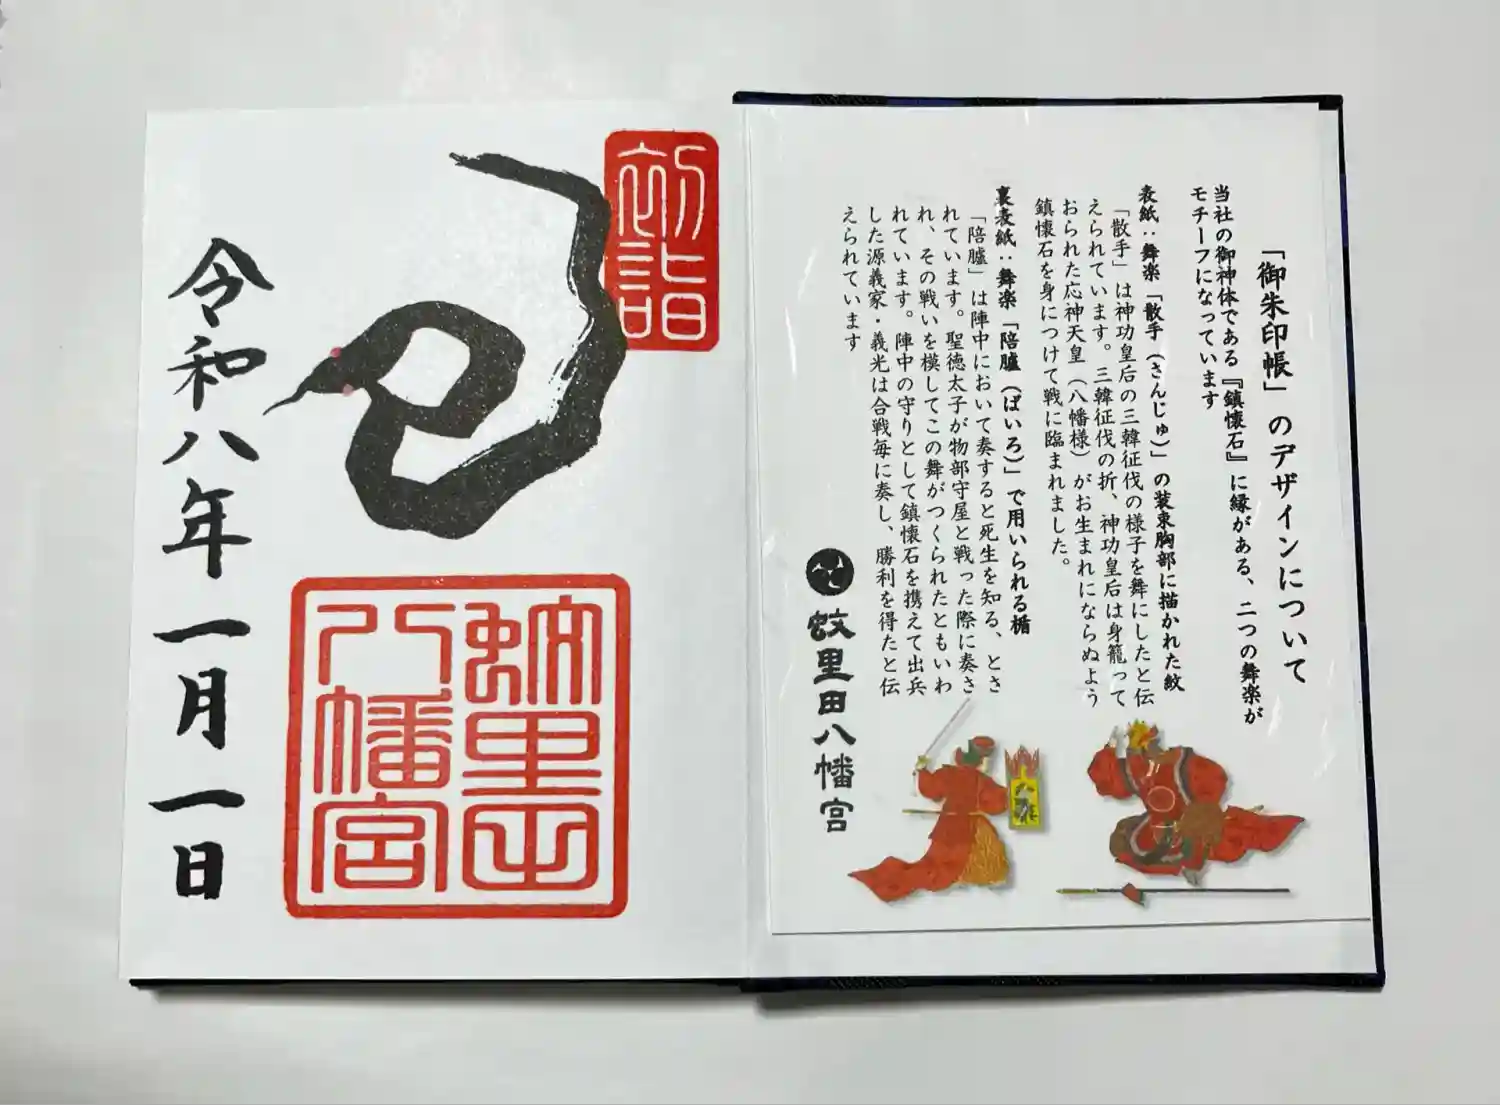 「御朱印帳」のデザインについて
当社の御神体である『鎮懐石』に縁がある、二つの舞楽が
モチーフになっています
表紙：舞楽「散手（さんじゅ）」の装束胸部に描かれた紋
「散手」は神功皇后の三韓征伐の様子を舞にしたと伝
えられています。三韓征伐の折、神功皇后は身籠って
おられた応神天皇（八幡様）がお生まれにならぬよう
鎮懐石を身につけて戦に臨まれました。
裏表紙：舞楽「陪臚（ばいろ）」で用いられる楯
「陪臚」は陣中において奏すると死生を知る、とさ
れています。聖徳太子が物部守屋と戦った際に奏さ
れ、その戦いを模してこの舞がつくられたともいわ
れています。陣中の守りとして鎮懐石を携えて出兵
した源義家・義光は合戦毎に奏し、勝利を得たと伝
えられています
蚊里田八幡宮
初詣
巳
蚊里田
八幡宮
令和八年一月一日